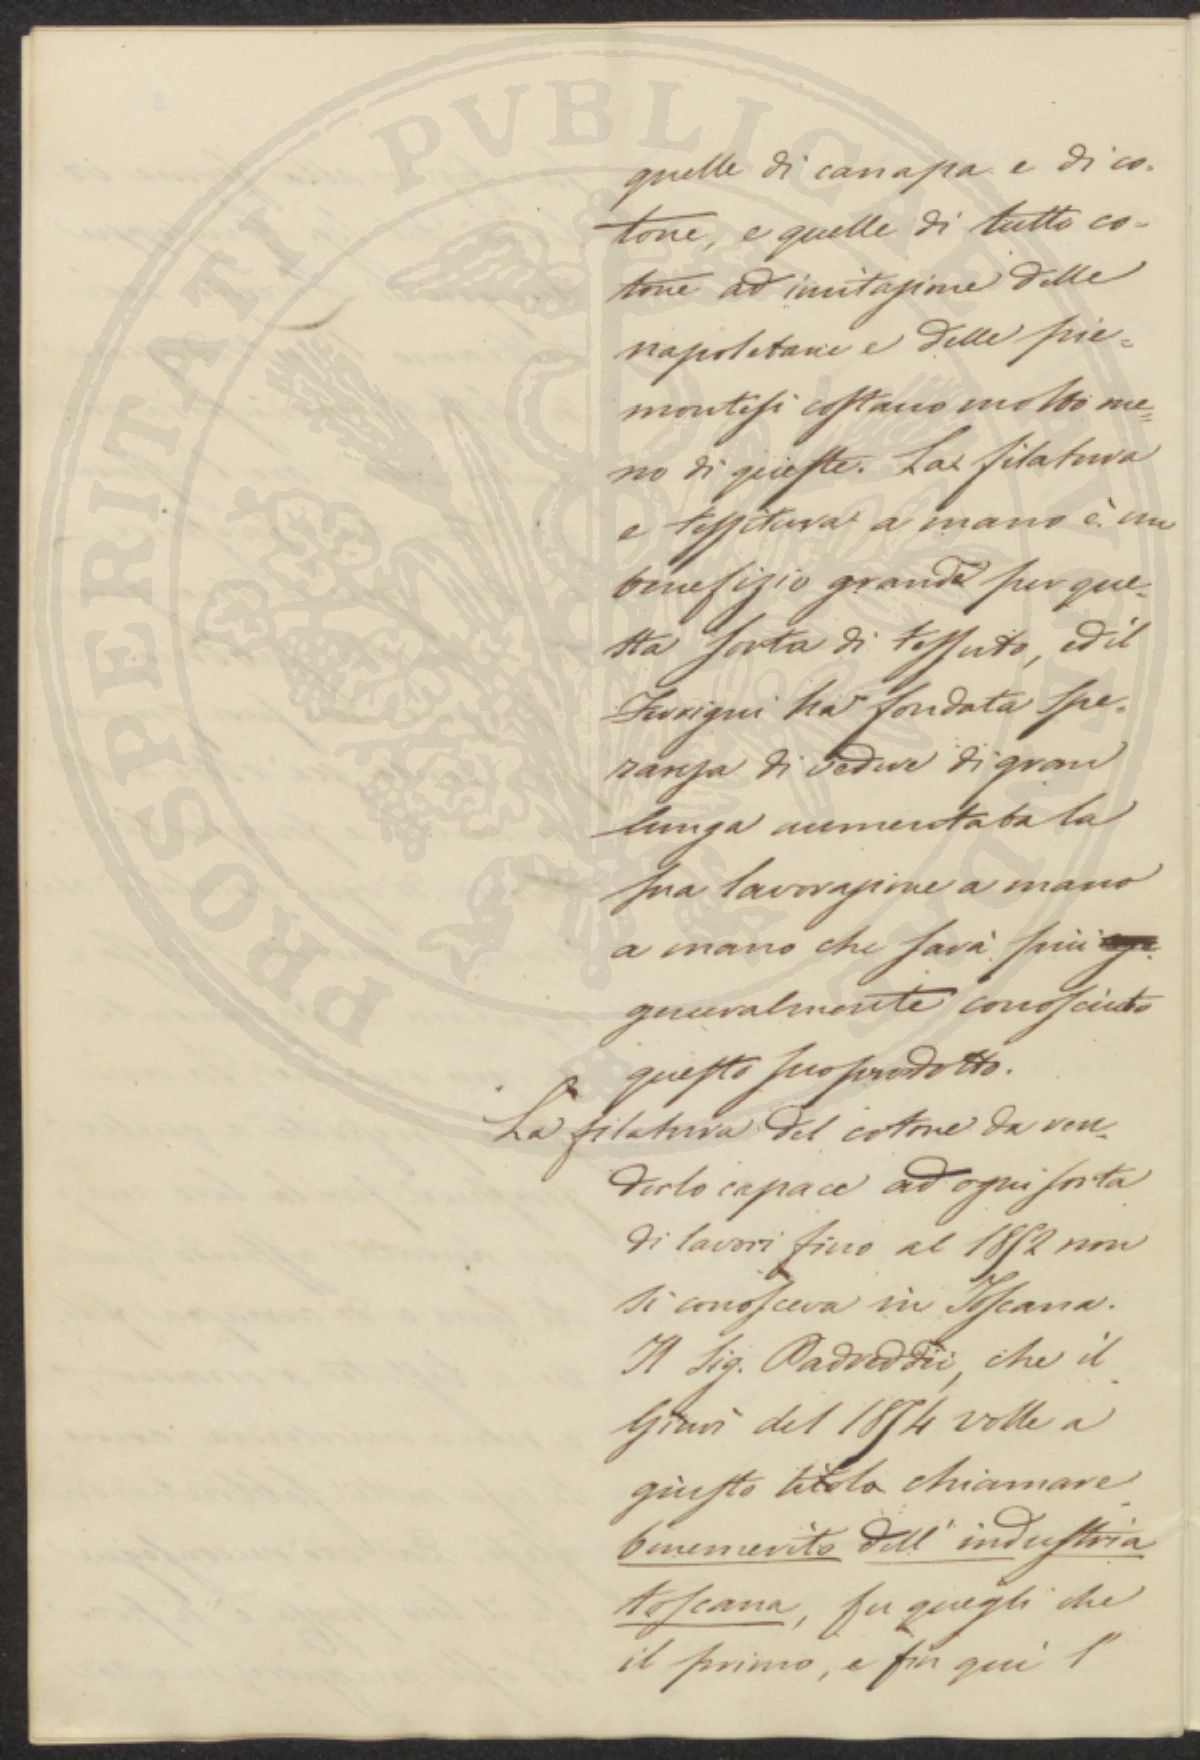 quelle di canapa e di co-
tone, e quelle di tutto co-
tone ad imitazione delle
napoletane e delle pie=
montesi costano molto me=
no di queste. La filatura
e tessitura a mano è un
benefizio grande per que-
sta sorta di tessuto, ed il
Turigni ha fondata spe-
ranza di vedere di gran
lunga aumentata la
sua lavorazione a mano
a mano che sarà più
generalmente conosciuto
questo suo prodotto.
La filatura del cotone da ren-
derlo capace ad ogni sorta
di lavori fino al 1852 non
si conosceva in Toscana.
Il Sig. Padreddii, che il
Giurì del 1854 volle a
giusto titolo chiamare
benemerito dell'industria
toscana, fu quegli che
il primo, e fin qui l'
PROSPERITATI PVBLICAE AVGENDAE